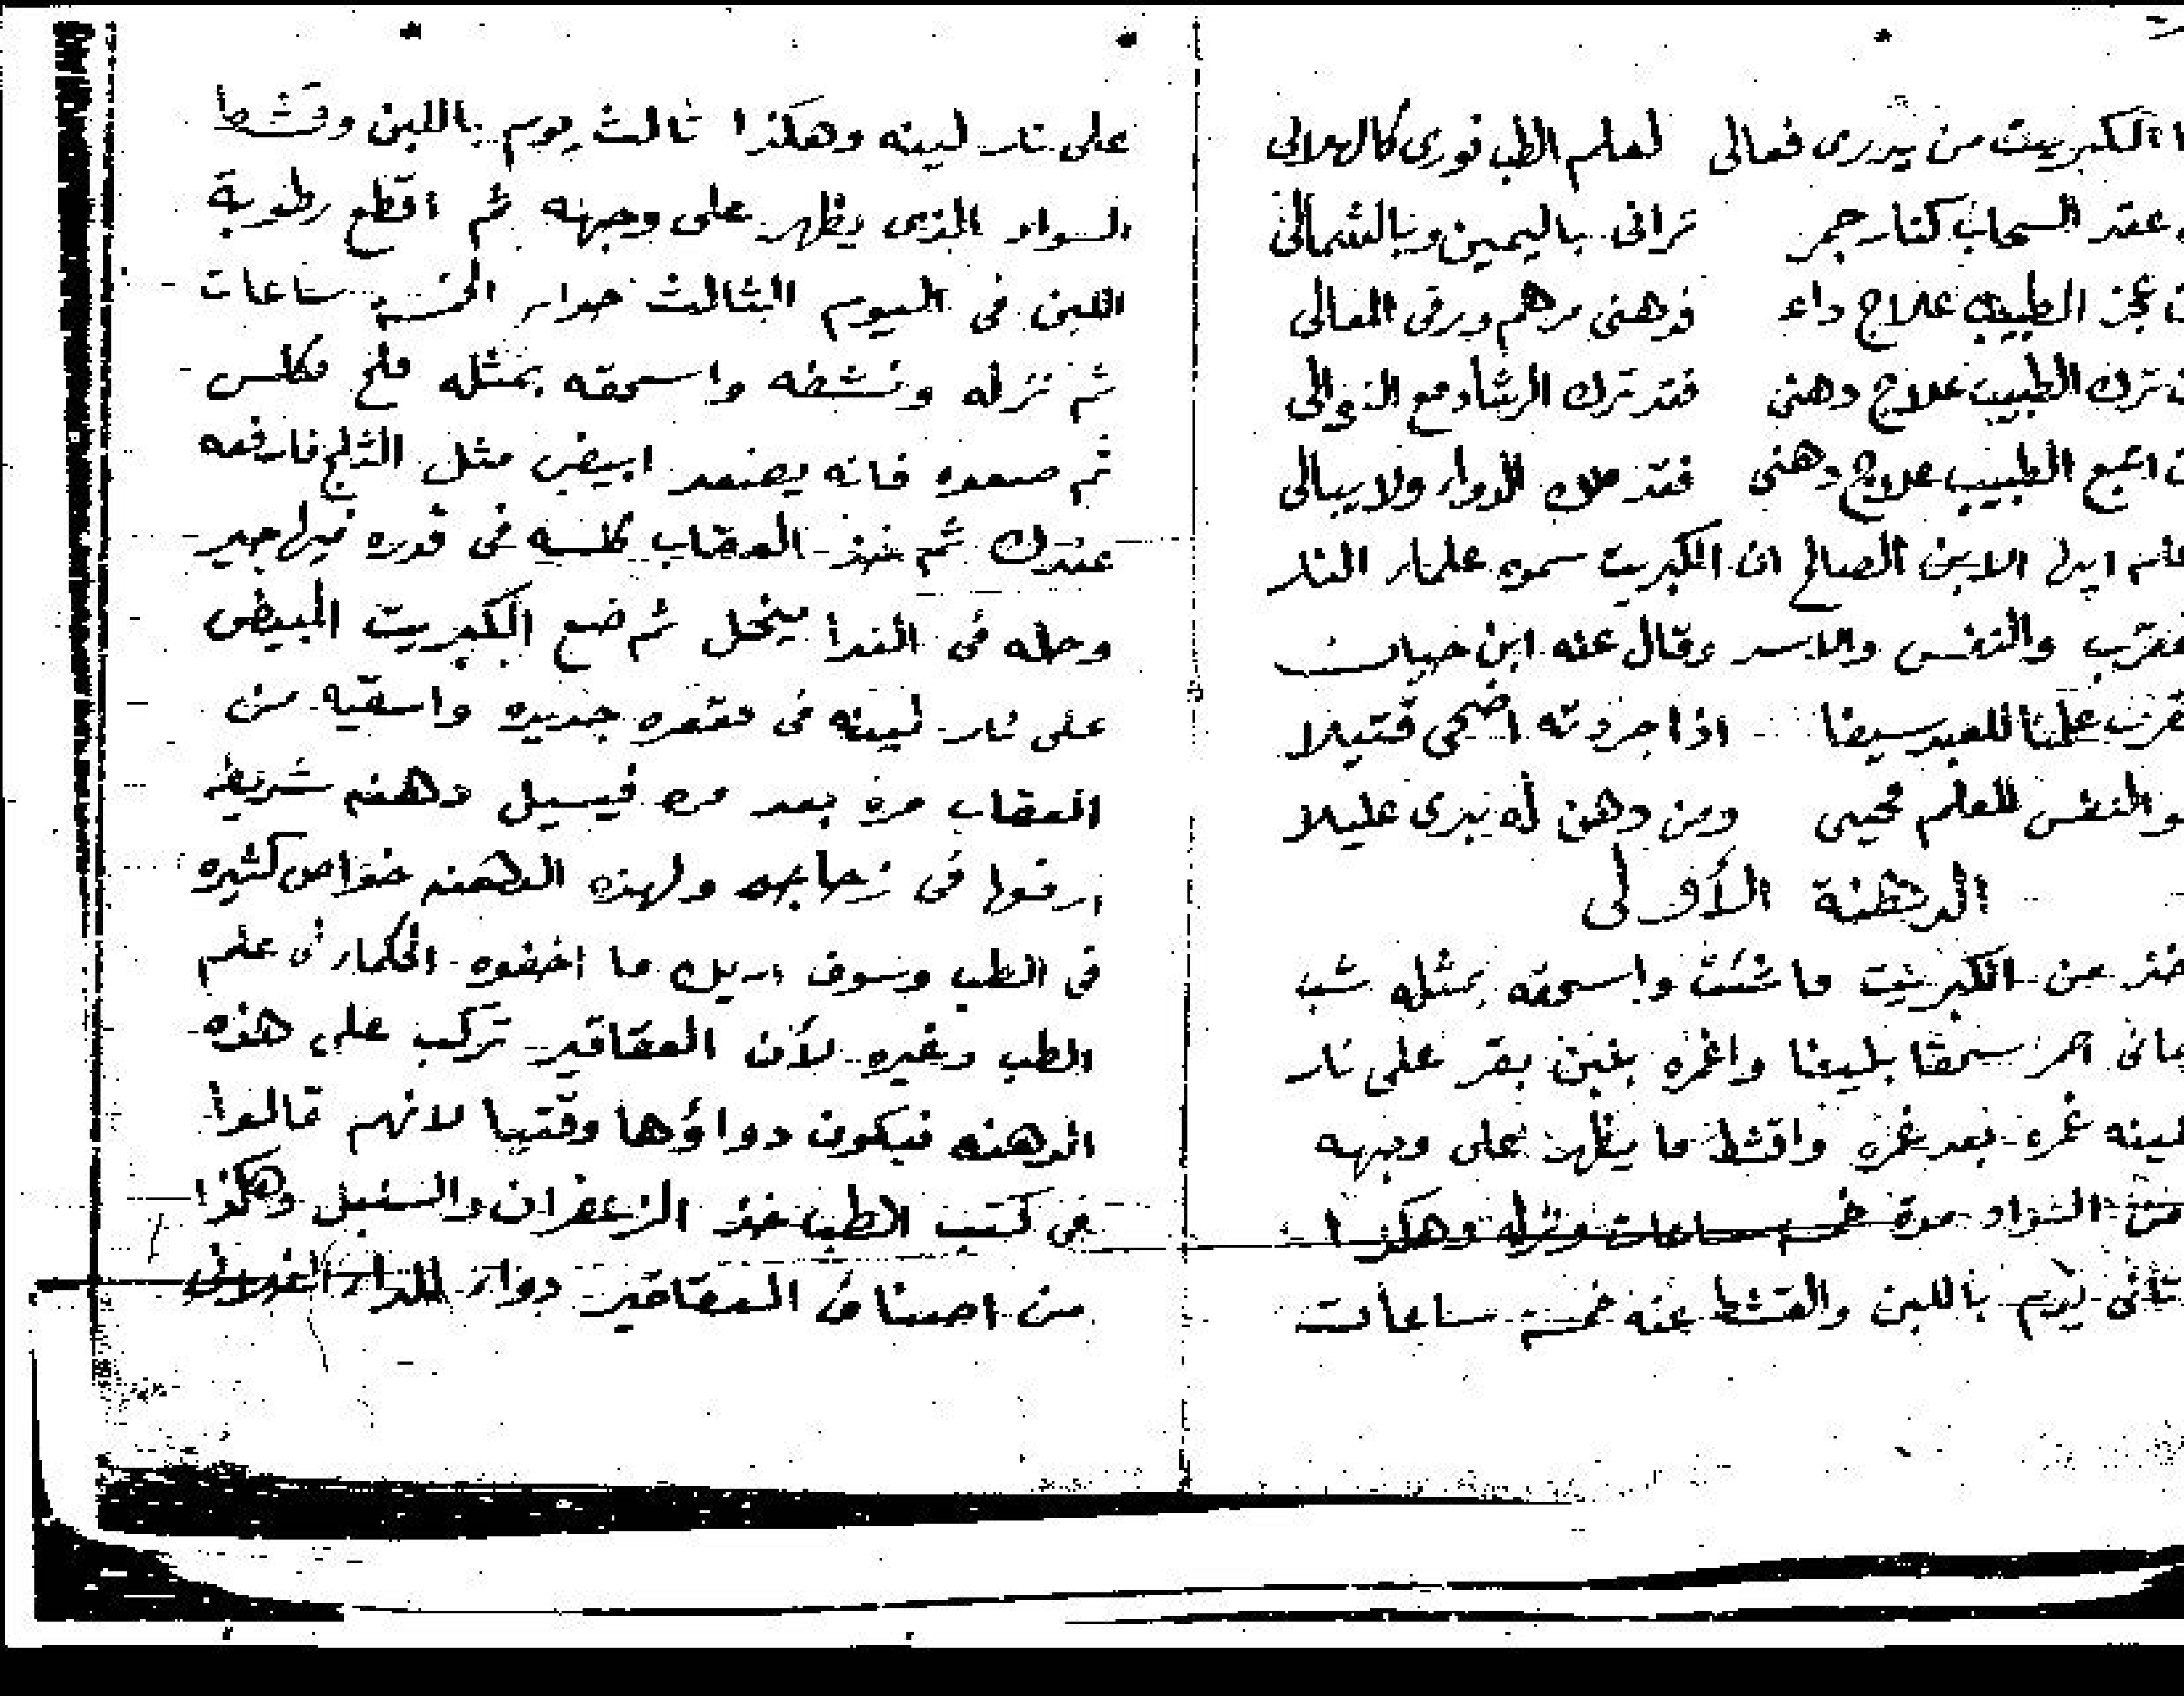 الكبريت من يدري فعالى لعلم الطب نورى كالهلالى
عقد السحاب كنار جمر ترانى باليمين وبالشمالى
عجز الطبيب علاج داء فدهنى مرهم ورقى المعالى
ترك الطبيب علاج دهنى فقد ترك الرشاد مع النوالى
الطبيب علاج دهنى فقد ملك الدواء ولا يبالى
ايها الابن الصالح ان الكبريت سموه علماء النار
والنفس والاسد وقال عنه ابن حيان
للعبد سيفا اذا جردته اضحى قتيلا
والنفس للعلم محيى ومن دهن له يبرى عليلا
الدهنة الأولى
خذ من الكبريت ما شئت واسحقه بمثله شب
احمر سحقا بليغا واغمره بلبن بقر على نار
لينه غمره بعد غمره واقشط ما يظهر على وجهه
من السواد مدة خمسة ساعات ونزله وهكذا
ثانى يوم باللبن والقشط عنه خمسة ساعات
على نار لينه وهكذا ثالث يوم باللبن وقشط
السواد الذى يظهر على وجهه ثم اقطع رطوبة
اللبن فى اليوم الثالث الخمسة ساعات
ثم نزله ونشفه واسحقه بمثله ملح مكلس
ثم صعده فانه يصعد ابيض مثل الثلج فارفعه
عندك ثم خذ العقاب كلسه فى قدره فيها جير
وحله فى الندا ينحل ثم ضع الكبريت المبيض
على نار لينه فى مقعره جديده واسقيه من
العقاب مره بعد مره فيسيل دهنه شريفه
ارفعها فى زجاجه ولهذه الدهنه خواص كثيره
فى الطب وسوف اريك ما اخفوه الحكماء فى علم
الطب وغيره لأن العقاقير تركب على هذه
الدهنه فيكون دواؤها وقتيا لانهم قالوا
فى كتب الطب خذ الزعفران والسنبل وهكذا
من اصناف العقاقير دواء للداء الفلانى